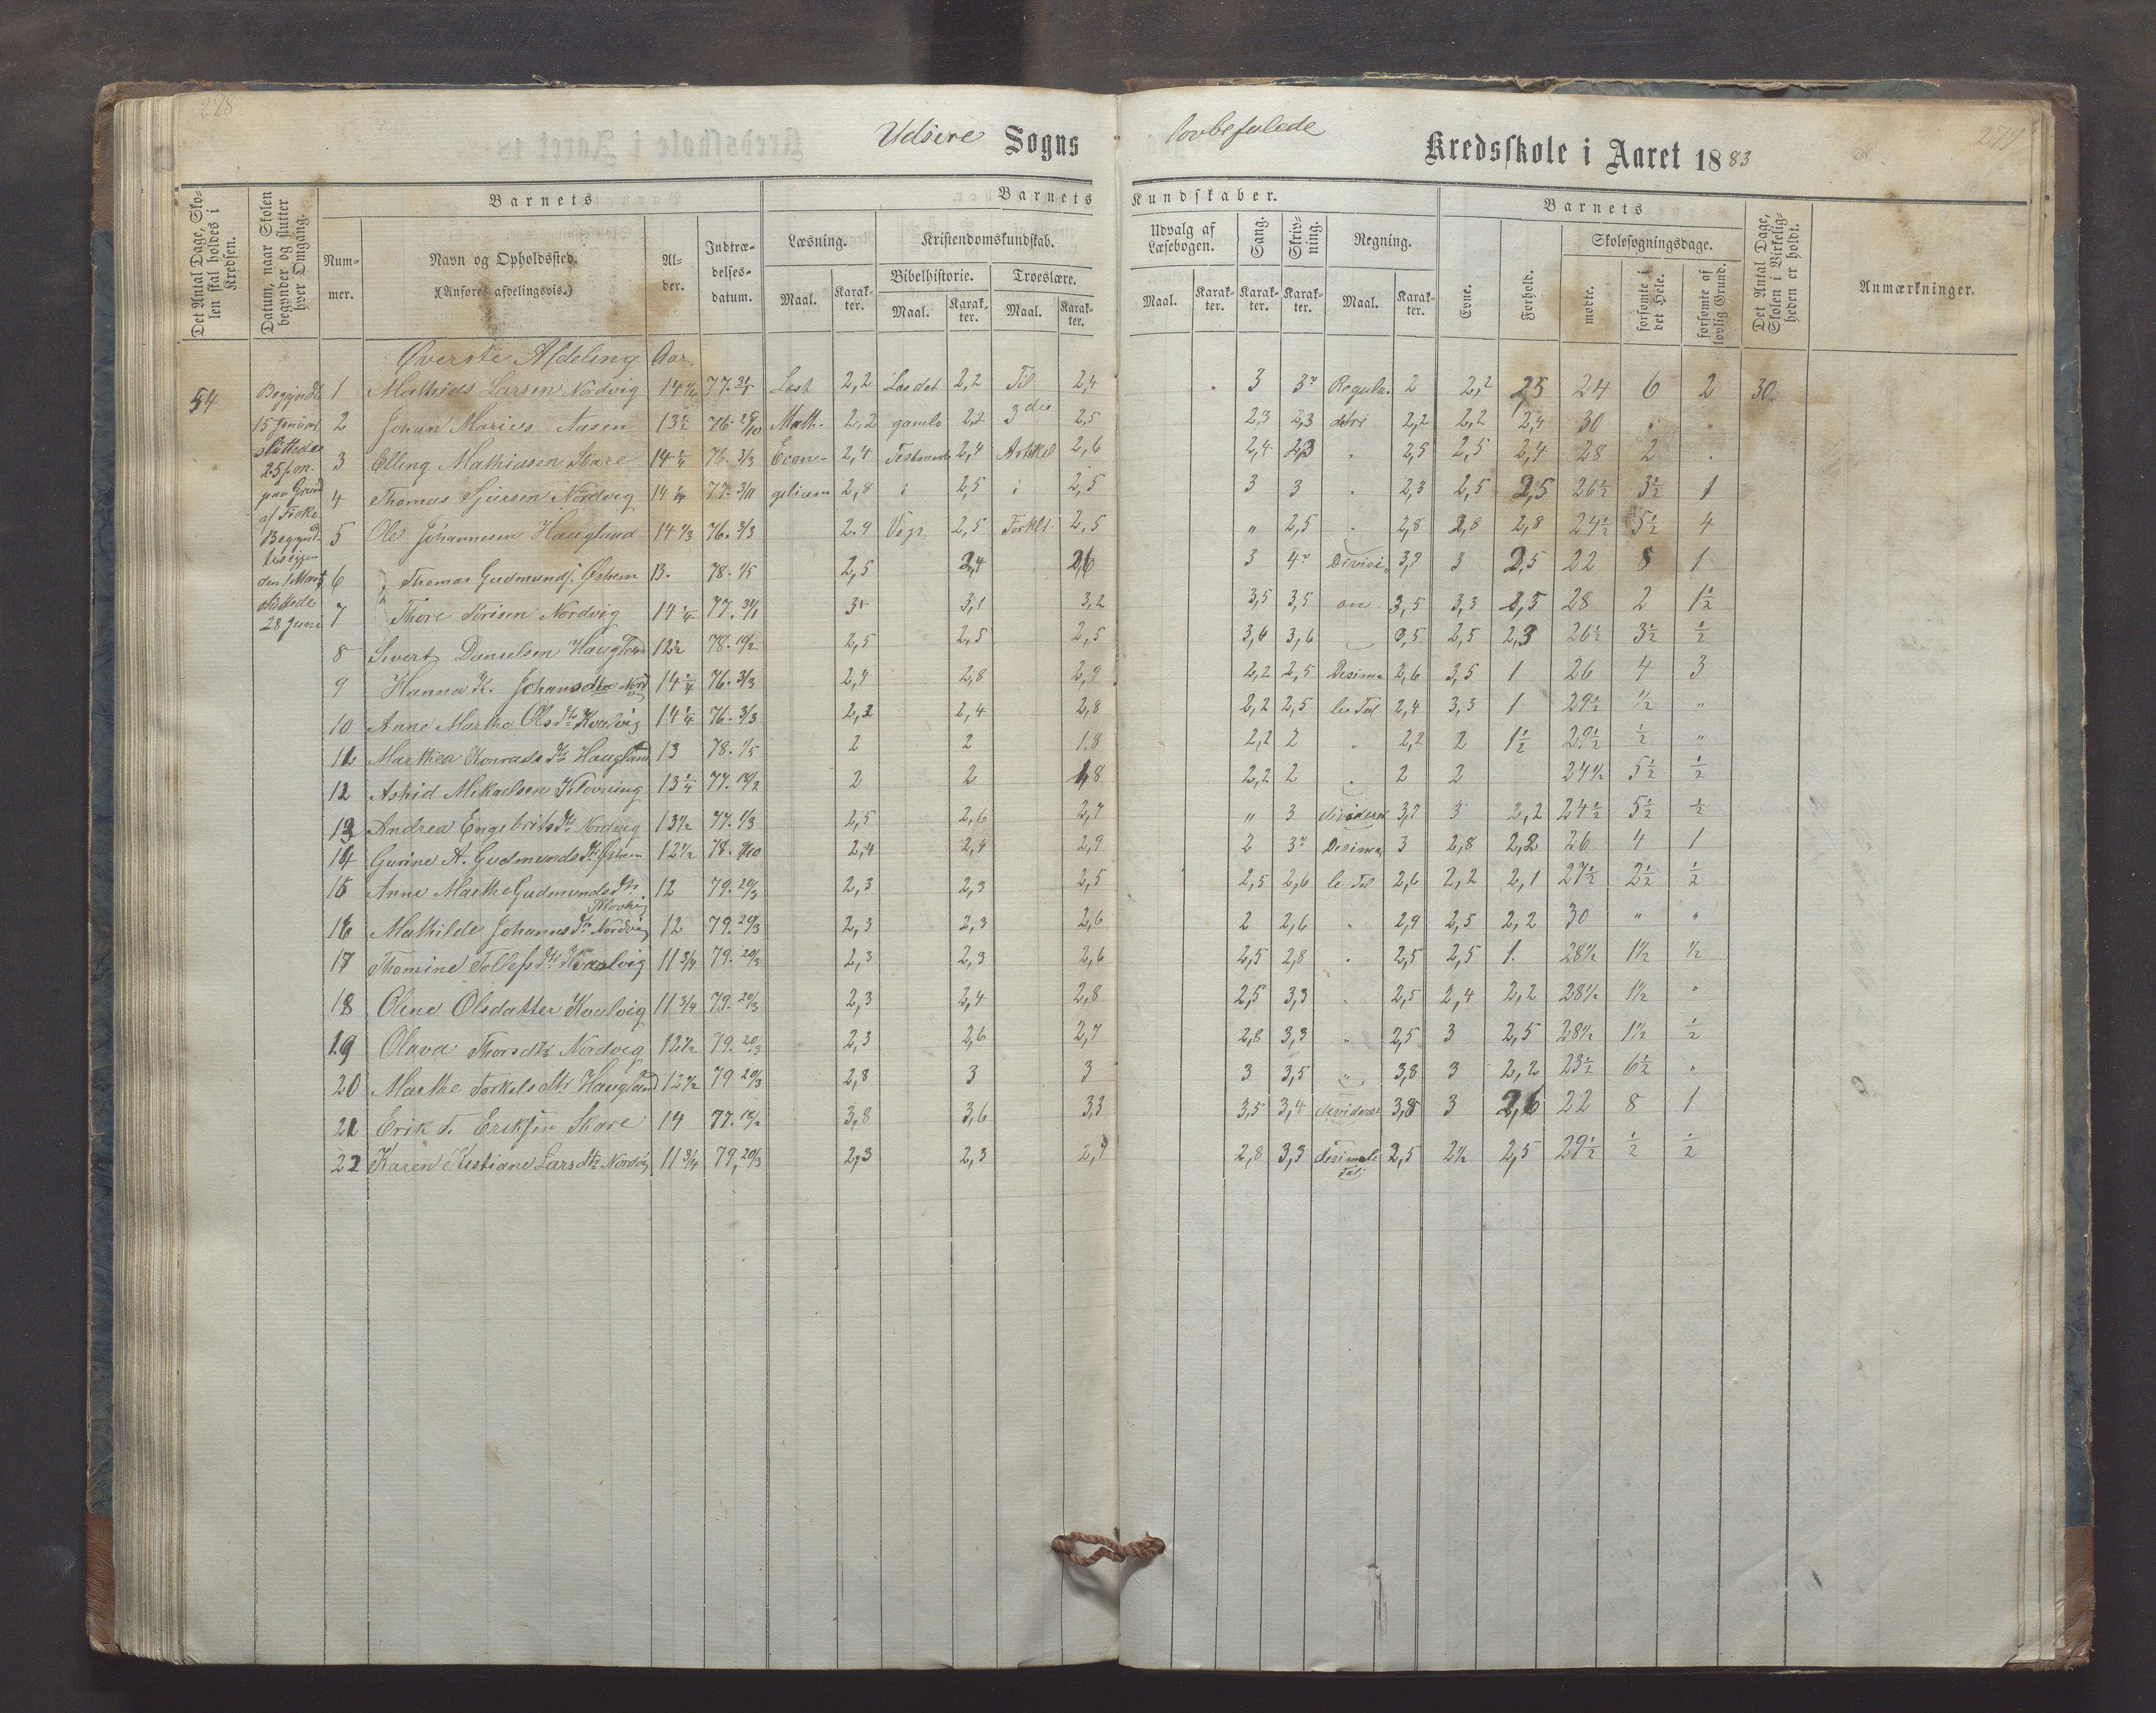 278
279
Udsire Sogns lovbefalede Kredsskole i Aaret 1883
Det Antal Dage, Skolen skal holdes i Kredsen.
Datum, naar Skolen begynder og slutter hver Omgang.
Barnets
Nummer.
Navn og Opholdssted.
(Anføres afdelingsvis.)
Alder.
Indtrædelsesdatum.
Barnets Kundskaber.
Læsning.
Maal. Karakter.
Kristendomskundskab.
Bibelhistorie.
Maal. Karakter.
Troeslære.
Maal. Karakter.
Udvalg af Læsebogen.
Maal. Karakter.
Sang.
Karakter.
Skrivning.
Karakter.
Regning.
Maal. Karakter.
Barnets
Evne.
Forhold.
Skolesøgningsdage.
mødte.
forsømte i det Hele.
forsømte af lovlig Grund.
Det Antal Dage, Skolen i Virkeligheden er holdt.
Anmærkninger.
54
Begyndte
15 Januar
sluttedes
25 Jan.
paa Grund
af Fiske
Begynd-
tes igjen
den 1 Marts
Sluttede
28 Juni
Øverste Afdeling Aar
1 Mathias Larsen Nordvig 77. Læst 2,2 Læs det 2,2 Til 2,4 3 3 Regula 2 2,2 2,5 24 6 2 30
2 Johan Marius Aasen 13½ 76 Math. 2,2 gamle 2,2 3die 2,5 2,3 2,3 detri 2,2 2,2 2,4 30
3 Elling Mathiasen Skare 14¼ 76. 3/3 Evan- 2,4 Testament 2,4 Artikel 2,6 2,4 2,3 2,5 2,5 2,4 28 2
4 Thomas Sjursen Nordvig 14¼ 77. 3/11 gelium 2,8 i 2,5 i 2,5 3 3 2,3 2,5 2,5 26½ 3½ 1
5 Ole Johannesen Haugland 14 1/3 76. 3/3 2,9 2,5 Forkl. 2,5 " 2,5 2,8 2,8 2,8 24½ 5½ 4
6 Thomas Gudmunds. Østhem 13. 78. 1/5 2,5 2,4 2,6 3 4 Divisi- 3,7 3 2,5 22 8 1
7 Thore Torisen Nordvig 14¼ 77. 3 3,1 3,2 3,5 3,5 on 3,5 3,3 2,5 28 2 1½
8 Sivert Danielsen Haugland 12½ 78. 19/2 2,5 2,5 2,5 3,6 3,6 2,5 2,3 26½ 3½ ½
9 Hanna K. Johansdtr Nordvig 14¼ 76. 3/3 2,4 2,8 2,9 2,2 2,5 Desima 2,6 3,5 1 26 4 3
10 Anne Marthe Olsdtr Kvalvig 14¼ 76. 3/3 2,2 2,4 2,8 2,2 2,5 le Tal 2,4 3,3 1 29½ ½ "
11 Marthea Konradsdtr Haugland 13 78. 1/5 2 2 1,8 2,2 2 " 2,2 2 1½ 29½ ½ "
12 Astrid Mikaelsen Klovning 13¼ 77. 18/2 2 2 1,8 2,2 2 2 2 24½ 5½ ½
13 Andrea Engebritsdtr Nordvig 13½ 77. 1/3 2,5 2,6 2,7 " 3 dividere 3,7 3 2,2 24½ 5½ ½
14 Gurine A. Gudmundsdtr Østhem 12½ 78. 2,4 2,4 2,9 2 3 Desima 3 2,8 2,2 26 4 1
15 Anne Marthe Gudmundsdtr Klovning 12 79. 20/3 2,3 2,3 2,5 2,5 2,6 le Tal 2,6 2,2 2,1 27½ 2½ ½
16 Mathilde Johannsdtr Nordvig 12 79. 20/3 2,3 2,3 2,6 2 2,6 " 2,9 2,5 2,2 30 " "
17 Thomine Tollefsdtr Kvalvig 11¾ 79. 20/3 2,3 2,3 2,6 2,5 2,8 2,5 2,5 1. 28½ 1½ ½
18 Oline Olsdatter Kvalvig 11¾ 79. 20/3 2,3 2,4 2,8 2,5 3,3 2,5 2,4 2,2 28½ 1½ "
19 Olava Thorsdtr Nordvig 12½ 79. 20/3 2,3 2,6 2,7 2,8 3,3 2,5 3 2,5 28½ 1½ ½
20 Marthe Torkelsdtr Haugland 12½ 79 20/3 2,8 3 3 3 3,5 " 3,8 3 2,2 23½ 6½ "
21 Erik T. Eriksen Skare 14 77. 18/2 3,8 3,6 3,3 3,5 3,4 dividere 3,8 3 2,6 22 8 1
22 Karen Kistiane Larsdtr Nordvig 11¾ 79. 20/3 2,3 2,3 2,7 2,8 3,3 desimale Tal 2,5 2½ 2,5 29½ ½ ½